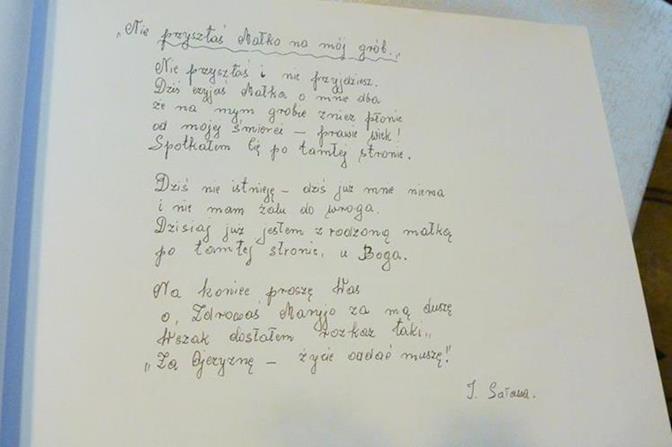 „Nie przyszłaś Matko na mój grób..."
Nie przyszłaś i nie przyjdziesz.
Dziś czyjaś Matka o mnie dba
że na mym grobie znicz płonie
od mojej śmierci – prawie wiek!
Spotkałem Cię po tamtej stronie.
Dziś nie istnieję – dziś już mnie niema
i nie mam żalu do wroga.
Dzisiaj już jestem z rodzoną matką
po tamtej stronie, u Boga.
Na koniec proszę Was
o, Zdrowaś Maryjo za mą duszę
Wszak dostałem rozkaz taki„
„Za Ojczyznę – życie oddać muszę!"
J. Saława.